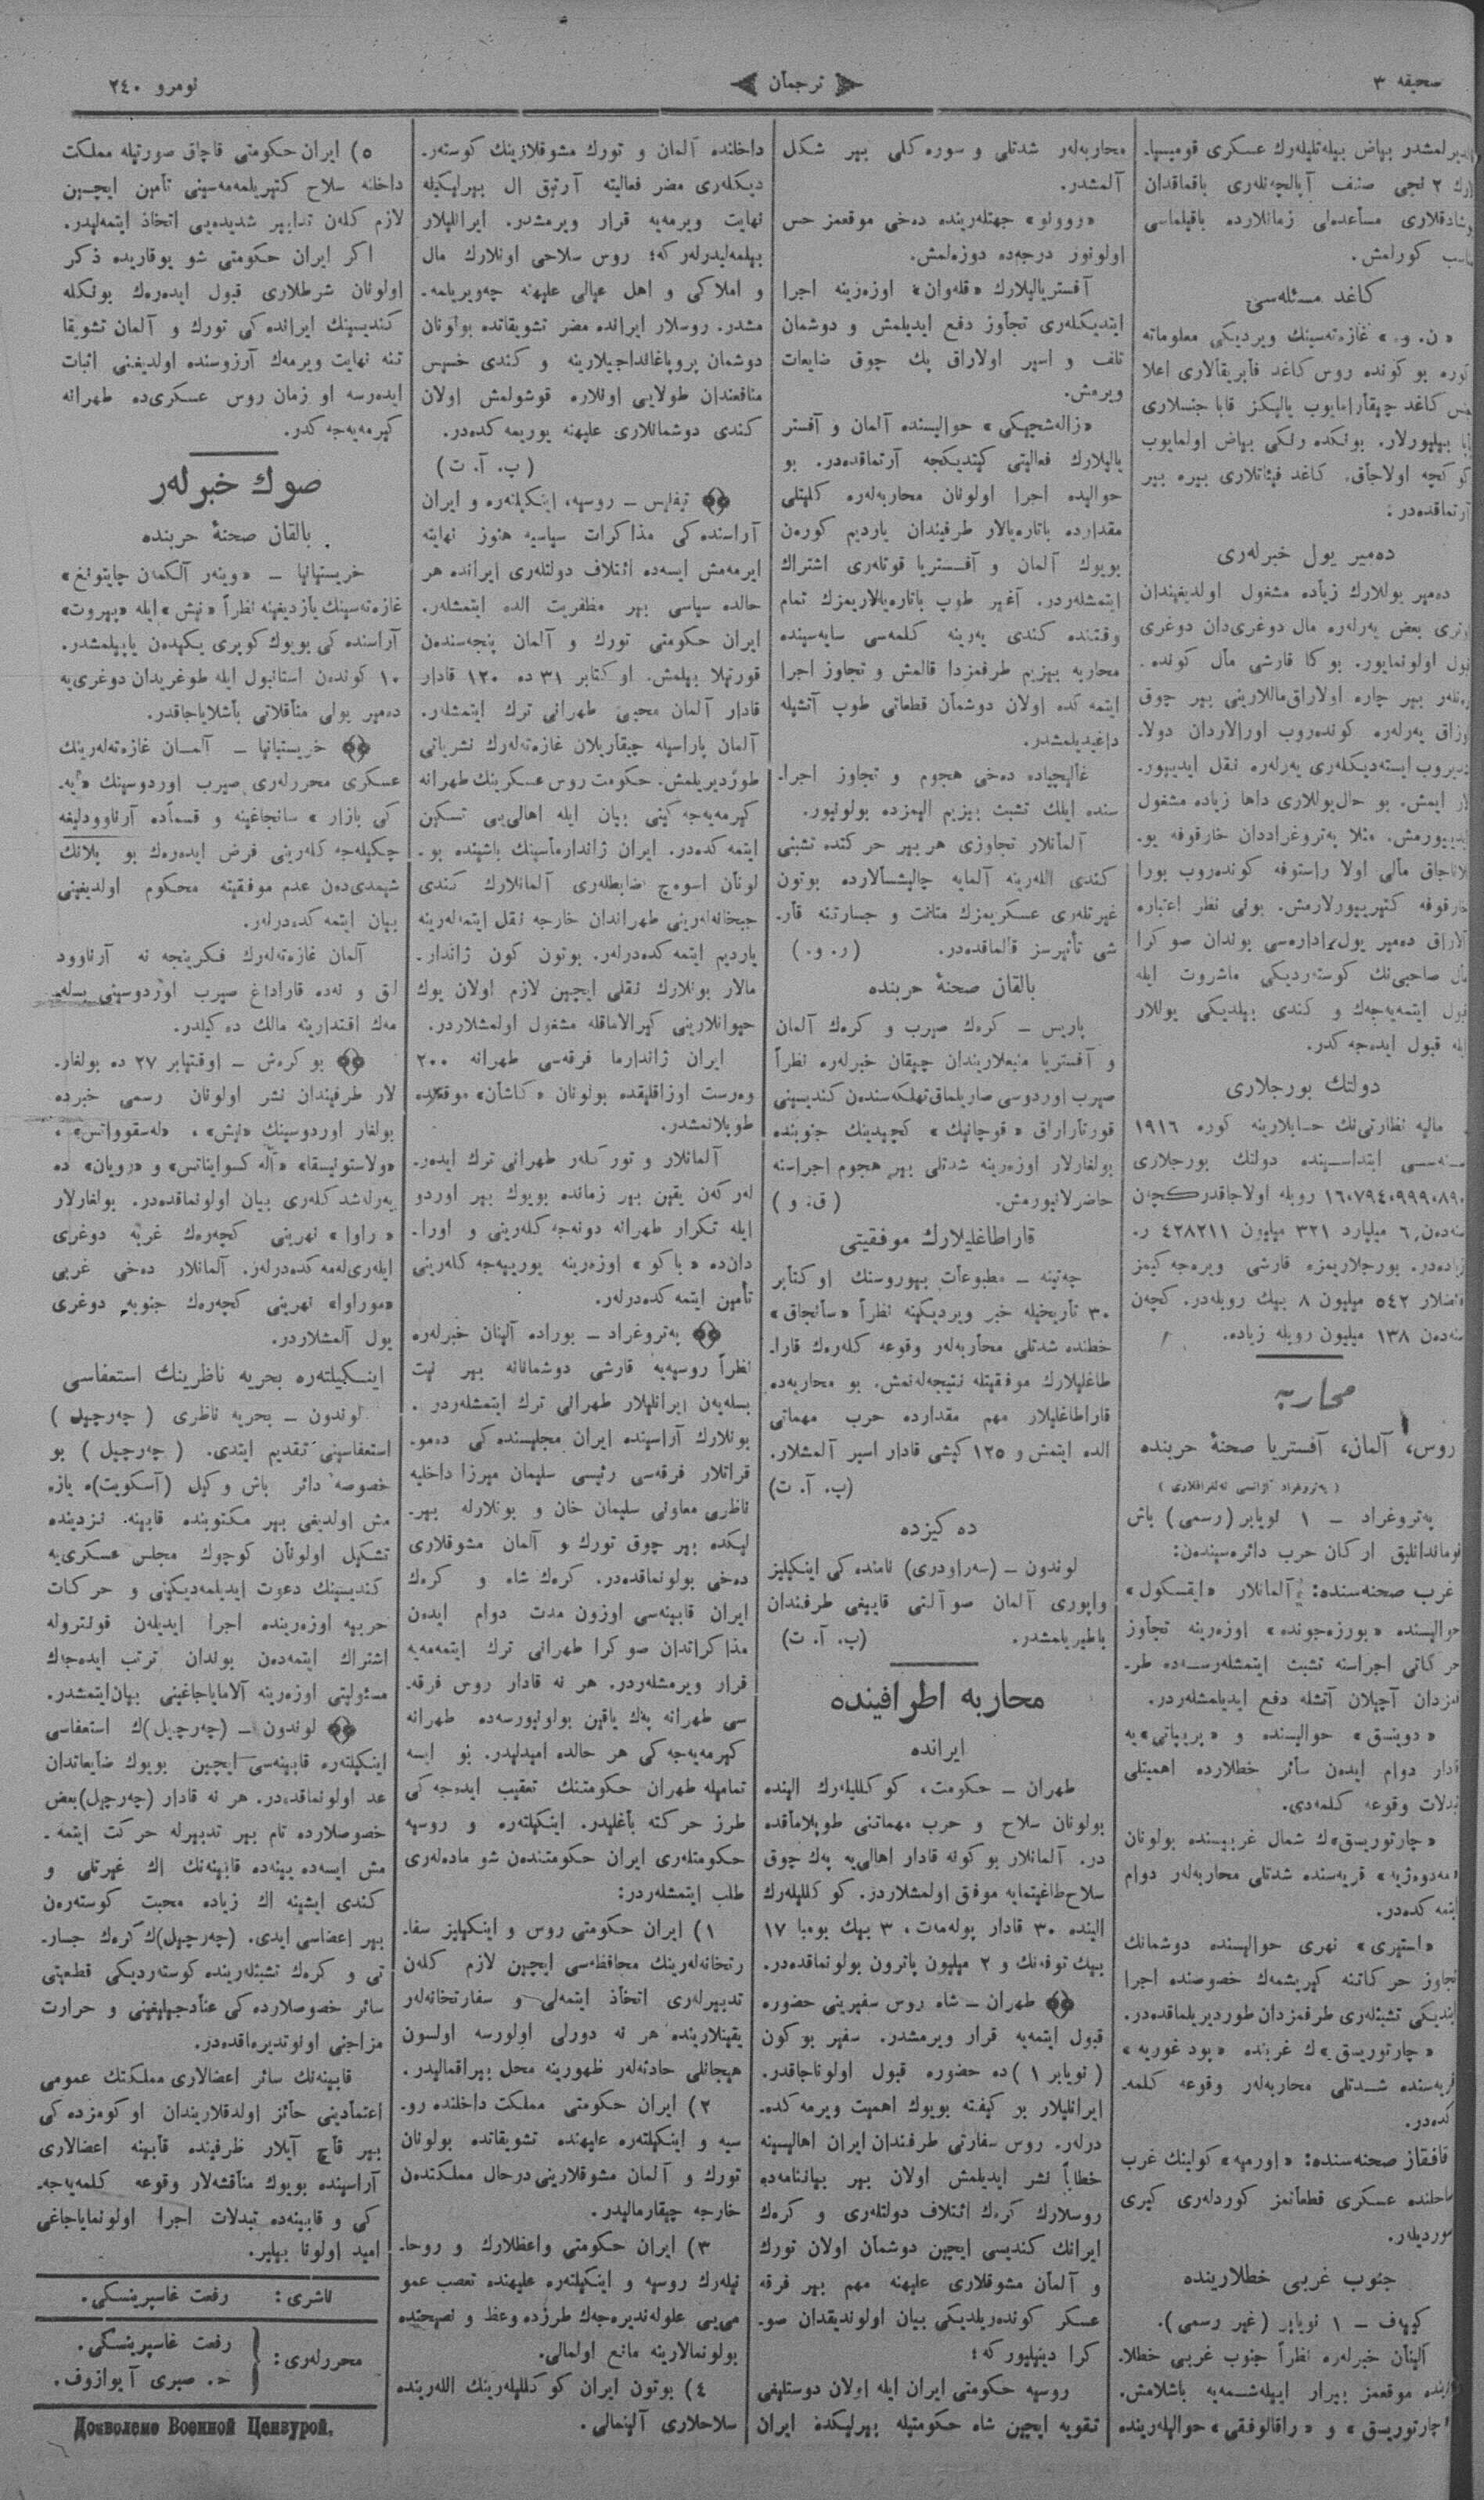 صحیفه ۳
ترجمان
نومرو ۲٤۰
لدیرلمشدر بیاض بیله‌تلیله‌رك عسکری قومیسیا۔
لرك ۲ نجی صنف آپالچه‌نله‌ری باقماقدان
مساعده‌لی زمانلارده باقیلماسی
کورلمش.
کاغد مسئله‌سی
«ن. و.» غازه‌ته‌سینك ویردیکی معلوماته
کوره بو کونده روس کاغد فابریقالاری اعلا
کاغد چیقارامایوب یالیکز قابا جنسلاری
یاپا بیلیورلار. بونکده رنکی بیاض اولمایوب
کوکچه اولاجاق. کاغد فیئاتلاری بیره بیر
آرتماقده‌در.
ده‌میر یول خبرله‌ری
ده‌میر یوللارك زیاده مشغول اولدیغیندان
بعض یه‌رله‌ره مال دوغری‌دان دوغری
قبول اولونمایور. بوکا قارشی مال کونده۔
بیر چاره اولاراق ماللارینی بیر چوق
اوزاق یه‌رله‌ره کونده‌روب اورالاردان دولا۔
ایسته‌دیکله‌ری یه‌رله‌ره نقل ایدییور۔
لار ایمش. بو حال یوللاری داها زیاده مشغول
ایدییورمش. مثلا په‌تروغراددان خارقوفه یو۔
للاناجاق مالی اولا راستوفه کونده‌روب بورا
خارقوفه کتیریورلارمش. بونی نظر اعتباره
آلاراق ده‌میر یول اداره‌سی بوندان صوکرا
مال صاحبی‌نك کوسته‌ردیکی ماشروت ایله
قبول ایتمه‌یه‌جه‌ك و کندی بیلدیکی یوللار
ایله قبول ایده‌جه‌کدر.
دولتك بورجلاری
مالیه نظارتی‌نك حسابلارینه کوره ۱۹۱٦
سنه‌سی ابتداسینده دولتك بورجلاری
۱٦۰۷۹٤۰۹۹۹۰۸۹۰ روبله اولاجاقدر کچه‌ن
سنه‌دن ٦ میلیارد ۳۲۱ میلیون ٤۲۸۲۱۱ ر.
زیاده‌در. بورجلاریمزه قارشی ویره‌جه‌کیمز
فائضلار ٥٤۲ میلیون ۸ بیك روبله‌در. کچه‌ن
سنه‌دن ۱۳۸ میلیون روبله زیاده.
محاربه
روس، آلمان، آفستریا صحنهٔ حربنده
(په‌تروغراد آژانسی ته‌لغرافلاری)
په‌تروغراد – ۱ نویابر (رسمی) باش
قوماندانلیق ارکان حرب دائره‌سیندن:
غرب صحنه‌سنده: آلمانلار «ایقسکول»
حوالیسنده «بورزه‌جونده» اوزه‌رینه تجاوز
حرکاتی اجراسنه تشبث ایتمشله‌رسه‌ده طر۔
فمزدان آچیلان آتشله دفع ایدیلمشله‌ردر.
«دوینسق» حوالیسنده و «پریپاتی»یه
قادار دوام ایده‌ن سائر خطلارده اهمیتلی
تبدلات وقوعه کلمه‌دی.
«چارتوریسق»ك شمال غربیسنده بولونان
«مه‌دوه‌ژیه» قریه‌سنده شدتلی محاربه‌له‌ر دوام
ایتمه‌کده‌در.
«استیری» نهری حوالیسنده دوشمانك
تجاوز حرکاتنه کیریشمه‌ك خصوصنده اجرا
ایتدیکی تشبثله‌ری طرفمزدان طوردیریلماقده‌در.
«چارتوریسق»ك غربنده «پودغوریه»
قریه‌سنده شدتلی محاربه‌له‌ر وقوعه کلمه۔
کده‌در.
قافقاز صحنه‌سنده: «اورمیه» کولینك غرب
ساحلنده عسکری قطعاتمز کوردله‌ری کیری
سوردیله‌ر.
جنوب غربی خطلارینده
کیه‌ف – ۱ نویابر (غیر رسمی).
آلینان خبرله‌ره نظراً جنوب غربی خطلا۔
رینده موقعمز بیرار اییله‌شمه‌یه باشلامش.
«چارتوریسق» و «رافالوفقی» حوالیله‌رینده
محاربه‌له‌ر شدتلی و سوره‌کلی بیر شکل
آلمشدر.
«روونو» جهتله‌رینده ده‌خی موقعمز حس
اولونور درجه‌ده دوزه‌لمش.
آفستریالیلارك «قله‌وان» اوزه‌رینه اجرا
ایتدیکله‌ری تجاوز دفع ایدیلمش و دوشمان
تلف و اسیر اولاراق پك چوق ضایعات
ویرمش.
«زاله‌شچیکی» حوالیسنده آلمان و آفستر
یالیلارك فعالیتی کیتدیکجه آرتماقده‌در. بو
حوالیده اجرا اولونان محاربه‌له‌ره کلیتلی
مقدارده باتاره‌یالار طرفیندان یاردیم کوره‌ن
بویوك آلمان و آفستریا قوتله‌ری اشتراك
ایتمشله‌ردر. آغیر طوپ باتاره‌یالاریمزك تمام
وقتنده کندی یه‌رینه کلمه‌سی سایه‌سینده
محاربه بیزیم طرفمزدا قالمش و تجاوز اجرا
ایتمه‌کده اولان دوشمان قطعاتی طوپ آتشیله
داغیدیلمشدر.
غالیچیاده ده‌خی هجوم و تجاوز اجرا۔
سنده ایلك تشبث بیزیم الیمزده بولونیور.
آلمانلار تجاوزی هر بیر حرکتده تشبثی
کندی الله‌رینه آلمایه چالیشسالارده بوتون
غیرتله‌ری عسکریمزك متانت و جسارتنه قار۔
شی تأثیرسز قالماقده‌در. (ر. و.)
بالقان صحنهٔ حربنده
پاریس – کره‌ك صیرب و کره‌ك آلمان
و آفستریا منبعلاریندان چیقان خبرله‌ره نظراً
صیرب اوردوسی صاریلماق تهلکه‌سندن کندیسینی
قورتاراراق «قوچانیك» کچیدینك جنوبنده
بولغارلار اوزه‌رینه شدتلی بیر هجوم اجراسنه
حاضرلانیورمش. (ق. و)
قاراطاغلیلارك موفقیتی
چه‌تینه – مطبوعات بیوروسنك اوکتابر
۳۰ تاریخیله خبر ویردیکینه نظراً «سانجاق»
خطنده شدتلی محاربه‌له‌ر وقوعه کله‌رك قارا۔
طاغلیلارك موفقیتله نتیجه‌له‌نمش. بو محاربه‌ده
قاراطاغلیلار مهم مقدارده حرب مهماتی
الده ایتمش و ۱۲٥ کیشی قادار اسیر آلمشلار.
(پ. آ. ت)
ده‌کیزده
لوندون – (سه‌راودری) نامنده‌کی اینکیلیز
واپوری آلمان صو آلتی قاییغی طرفندان
باطیریلمشدر. (پ. آ. ت)
محاربه اطرافینده
ایرانده
طهران – حکومت، کوکللیله‌رك الینده
بولونان سلاح و حرب مهماتنی طوپلاماقده
در. آلمانلار بو کونه قادار اهالی‌یه په‌ك چوق
سلاح طاغیتمایه موفق اولمشلاردر. کوکللیله‌رك
الینده ۳۰ قادار پوله‌مه‌ت، ۳ بیك بومبا ۱۷
بیك توفه‌نك و ۲ میلیون پاترون بولونماقده‌در.
طهران – شاه روس سفیرینی حضوره
قبول ایتمه‌یه قرار ویرمشدر. سفیر بو کون
(نویابر ۱)ده حضوره قبول اولوناجاقدر.
ایرانلیلار بو کیفته بویوك اهمیت ویرمه‌کده۔
درله‌ر. روس سفارتی طرفندان ایران اهالیسینه
خطاباً نشر ایدیلمش اولان بیر بیاننامه‌ده
روسلارك کره‌ك ائتلاف دولتله‌ری و کره‌ك
ایرانك کندیسی ایچین دوشمان اولان تورك
و آلمان مشوقلاری علیهنه مهم بیر فرقه
عسکر کونده‌ریلدیکی بیان اولوندیقدان صو۔
کرا دینیلیور که؛
روسیه حکومتی ایران ایله اولان دوستلیغی
تقویه ایچین شاه حکومتیله بیرلیکده ایران
داخلنده آلمان و تورك مشوقلارینك کوسته‌ر۔
دیکله‌ری مضر فعالیته آرتیق ال بیرلیکیله
نهایت ویرمه‌یه قرار ویرمشدر. ایرانلیلار
بیلمه‌لیدرله‌ر که؛ روس سلاحی اونلارك مال
و املاکی و اهل عیالی علیهنه چه‌ویریلمه۔
مشدر. روسلار ایرانده مضر تشویقاتده بولونان
دوشمان پروپاغانداجیلارینه و کندی خسیس
منافعندان طولایی اونلاره قوشولمش اولان
کندی دوشمانلاری علیهنه یوریمه‌کده‌در.
(پ. آ. ت)
تیفلیس – روسیه، اینکیلته‌ره و ایران
آراسنده‌کی مذاکرات سیاسیه هنوز نهایته
ایرمه‌مش ایسه‌ده ائتلاف دولتله‌ری ایرانده هر
حالده سیاسی بیر مظفریت الده ایتمشله‌ر.
ایران حکومتی تورك و آلمان پنجه‌سندن
قورتیلا بیلمش. اوکتابر ۳۱ ده ۱۲۰ قادار
قادار آلمان محبی طهرانی ترك ایتمشله‌ر.
آلمان پاراسیله چیقاریلان غازه‌ته‌له‌رك نشریاتی
طوردیریلمش. حکومت روس عسکرینك طهرانه
کیرمه‌یه‌جه‌کینی بیان ایله اهالی‌یی تسکین
ایتمه‌کده‌در. ایران ژاندارماسینك باشینده بو۔
لونان اسوه‌ج ضابطله‌ری آلمانلارك کندی
جبخانه‌له‌رینی طهراندان خارجه نقل ایتمه‌له‌رینه
یاردیم ایتمه‌کده‌درله‌ر. بوتون کون ژاندار۔
مالار بونلارك نقلی ایچین لازم اولان یوك
حیوانلارینی کیرالاماقله مشغول اولمشلاردر.
ایران ژاندارما فرقه‌سی طهرانه ۲۰۰
وه‌رست اوزاقلیقده بولونان «کاشان» موقعنده
طوپلانمشدر.
آلمانلار و تورکله‌ر طهرانی ترك ایده‌ر۔
له‌ر که‌ن یقین بیر زمانده بویوك بیر اوردو
ایله تکرار طهرانه دونه‌جه‌کله‌رینی و اورا۔
دان‌ده «باکو» اوزه‌رینه یوریه‌جه‌کله‌رینی
تأمین ایتمه‌کده‌درله‌ر.
په‌تروغراد – بوراده آلینان خبرله‌ره
نظراً روسیه‌یه قارشی دوشمانانه بیر نیت
بسله‌یه‌ن ایرانلیلار طهرانی ترك ایتمشله‌ردر.
بونلارك آراسینده ایران مجلیسنده‌کی ده‌مو۔
قراتلار فرقه‌سی رئیسی سلیمان میرزا داخلیه
ناظری معاونی سلیمان خان و بونلارله بیر۔
لیکده بیر چوق تورك و آلمان مشوقلاری
ده‌خی بولونماقده‌در. کره‌ك شاه و کره‌ك
ایران قابینه‌سی اوزون مدت دوام ایده‌ن
مذاکراتدان صوکرا طهرانی ترك ایتمه‌مه‌یه
قرار ویرمشله‌ردر. هر نه قادار روس فرقه۔
سی طهرانه په‌ك یاقین بولونیورسه‌ده طهرانه
کیرمه‌یه‌جه‌کی هر حالده امیدلیدر. بو ایسه
تمامیله طهران حکومتنك تعقیب ایده‌جه‌کی
طرز حرکته باغلیدر. اینکیلته‌ره و روسیه
حکومتله‌ری ایران حکومتندن شو ماده‌له‌ری
طلب ایتمشله‌ردر:
۱) ایران حکومتی روس و اینکیلیز سفا۔
رتخانه‌له‌رینك محافظه‌سی ایچین لازم کله‌ن
تدبیرله‌ری اتخاذ ایتمه‌لی و سفارتخانه‌له‌ر
یقینلارینده هر نه دورلی اولورسه اولسون
هیجانلی حادثه‌له‌ر ظهورینه محل بیراقمالیدر.
۲) ایران حکومتی مملکت داخلنده رو۔
سیه و اینکیلته‌ره علیهنده تشویقاتده بولونان
تورك و آلمان مشوقلارینی درحال مملکتدن
خارجه چیقارمالیدر.
۳) ایران حکومتی واعظلارك و روحا۔
نیله‌رك روسیه و اینکیلته‌ره علیهنده تعصب عمو
می‌یی علوله‌ندیره‌جه‌ك طرزده وعظ و نصیحتده
بولونمالارینه مانع اولمالی.
٤) بوتون ایران کوکللیله‌رینك الله‌رینده
سلاحلاری آلینمالی.
٥) ایران حکومتی قاچاق صورتیله مملکت
داخلنه سلاح کتیریلمه‌مه‌سینی تأمین ایچین
لازم کله‌ن تدابیر شدیده‌یی اتخاذ ایتمه‌لیدر.
اکر ایران حکومتی شو یوقاریده ذکر
اولونان شرطلاری قبول ایده‌ره‌ك بونکله
کندیسینك ایرانده‌کی تورك و آلمان تشویقا
تنه نهایت ویرمه‌ك آرزوسنده اولدیغنی اثبات
ایده‌رسه او زمان روس عسکری‌ده طهرانه
کیرمه‌یه‌جه‌کدر.
صوك خبرله‌ر
بالقان صحنهٔ حربنده
خریستیانیا – «وینه‌ر آلکمه‌ن چایتونغ»
غازه‌ته‌سینك یازدیغینه نظراً «نیش» ایله «پیروت»
آراسنده‌کی بویوك کوپری یکیدن یاپیلمشدر.
۱۰ کوندن استانبول ایله طوغریدان دوغری‌یه
ده‌میر یولی مناقلاتی باشلایاجاقدر.
خریستیانیا – آلمان غازه‌ته‌له‌رینك
عسکری محررله‌ری صیرب اوردوسینك «یه۔
کی بازار» سانجاغینه و قسماً ده آرناوودلیغه
چکیله‌جه‌کله‌رینی فرض ایده‌ره‌ك بو پلانك
شیمدی‌دن عدم موفقیته محکوم اولدیغینی
بیان ایتمه‌کده‌درله‌ر.
آلمان غازه‌ته‌له‌رك فکرینجه نه آرناوود
لق و نه‌ده قاراداغ صیرب اوردوسینی بسله۔
مه‌ك اقتدارینه مالك ده‌کیلدر.
بوکره‌ش – اوقتیابر ۲۷ ده بولغار۔
لار طرفیندان نشر اولونان رسمی خبرده
بولغار اوردوسینك «نیش»، «له‌سقوواتس»،
«ولاستوتیسقا» «آله‌کسوایناتس» و «رویان» ده
یه‌رله‌شدکله‌ری بیان اولونماقده‌در. بولغارلار
«راوا» نهرینی کچه‌ره‌ك غربه دوغری
ایله‌ری‌له‌مه‌کده‌درله‌ر. آلمانلار ده‌خی غربی
«موراوا» نهرینی کچه‌ره‌ك جنوبه دوغری
یول آلمشلاردر.
اینکیلته‌ره بحریه ناظرینك استعفاسی
لوندون – بحریه ناظری (چه‌رچیل)
استعفاسینی تقدیم ایتدی. (چه‌رچیل) بو
خصوصه دائر باش وکیل (آسکویت)ه یاز۔
مش اولدیغی بیر مکتوبنده قابینه نزدینده
تشکیل اولونان کوچوك مجلس عسکری‌یه
کندیسینك دعوت ایدیلمه‌دیکینی و حرکات
حربیه اوزه‌رینده اجرا ایدیله‌ن قونتروله
اشتراك ایتمه‌دن بوندان ترتب ایده‌جه‌ك
مسئولیتی اوزه‌رینه آلامایاجاغینی بیان ایتمشدر.
لوندون – (چه‌رچیل)ك استعفاسی
اینکیلته‌ره قابینه‌سی ایچین بویوك ضایعاتدان
عد اولونماقده‌در. هر نه قادار (چه‌رچیل) بعض
خصوصلارده تام بیر تدبیرله حرکت ایتمه۔
مش ایسه‌ده یینه‌ده قابینه‌نك اك غیرتلی و
کندی ایشینه اك زیاده محبت کوسته‌ره‌ن
بیر اعضاسی ایدی. (چه‌رچیل)ك کره‌ك جسار۔
تی و کره‌ك تشبثله‌رینده کوسته‌ردیکی قطعیتی
سائر خصوصلارده‌کی عنادجیلیغینی و حرارت
مزاجنی اونوتدیرماقده‌در.
قابینه‌نك سائر اعضالاری مملکتك عمومی
اعتمادینی حائز اولدقلاریندان اوکومزده‌کی
بیر قاچ آیلار ظرفینده قابینه اعضالاری
آراسینده بویوك مناقشه‌لار وقوعه کلمه‌یه‌جه۔
کی و قابینه‌ده تبدلات اجرا اولونمایاجاغی
امید اولونا بیلیر.
ناشری: رفعت غاسپرینسکی.
محررله‌ری: رفعت غاسپرینسکی.
ح. صبری آیوازوف.
Дозволено Военной Цензурой.